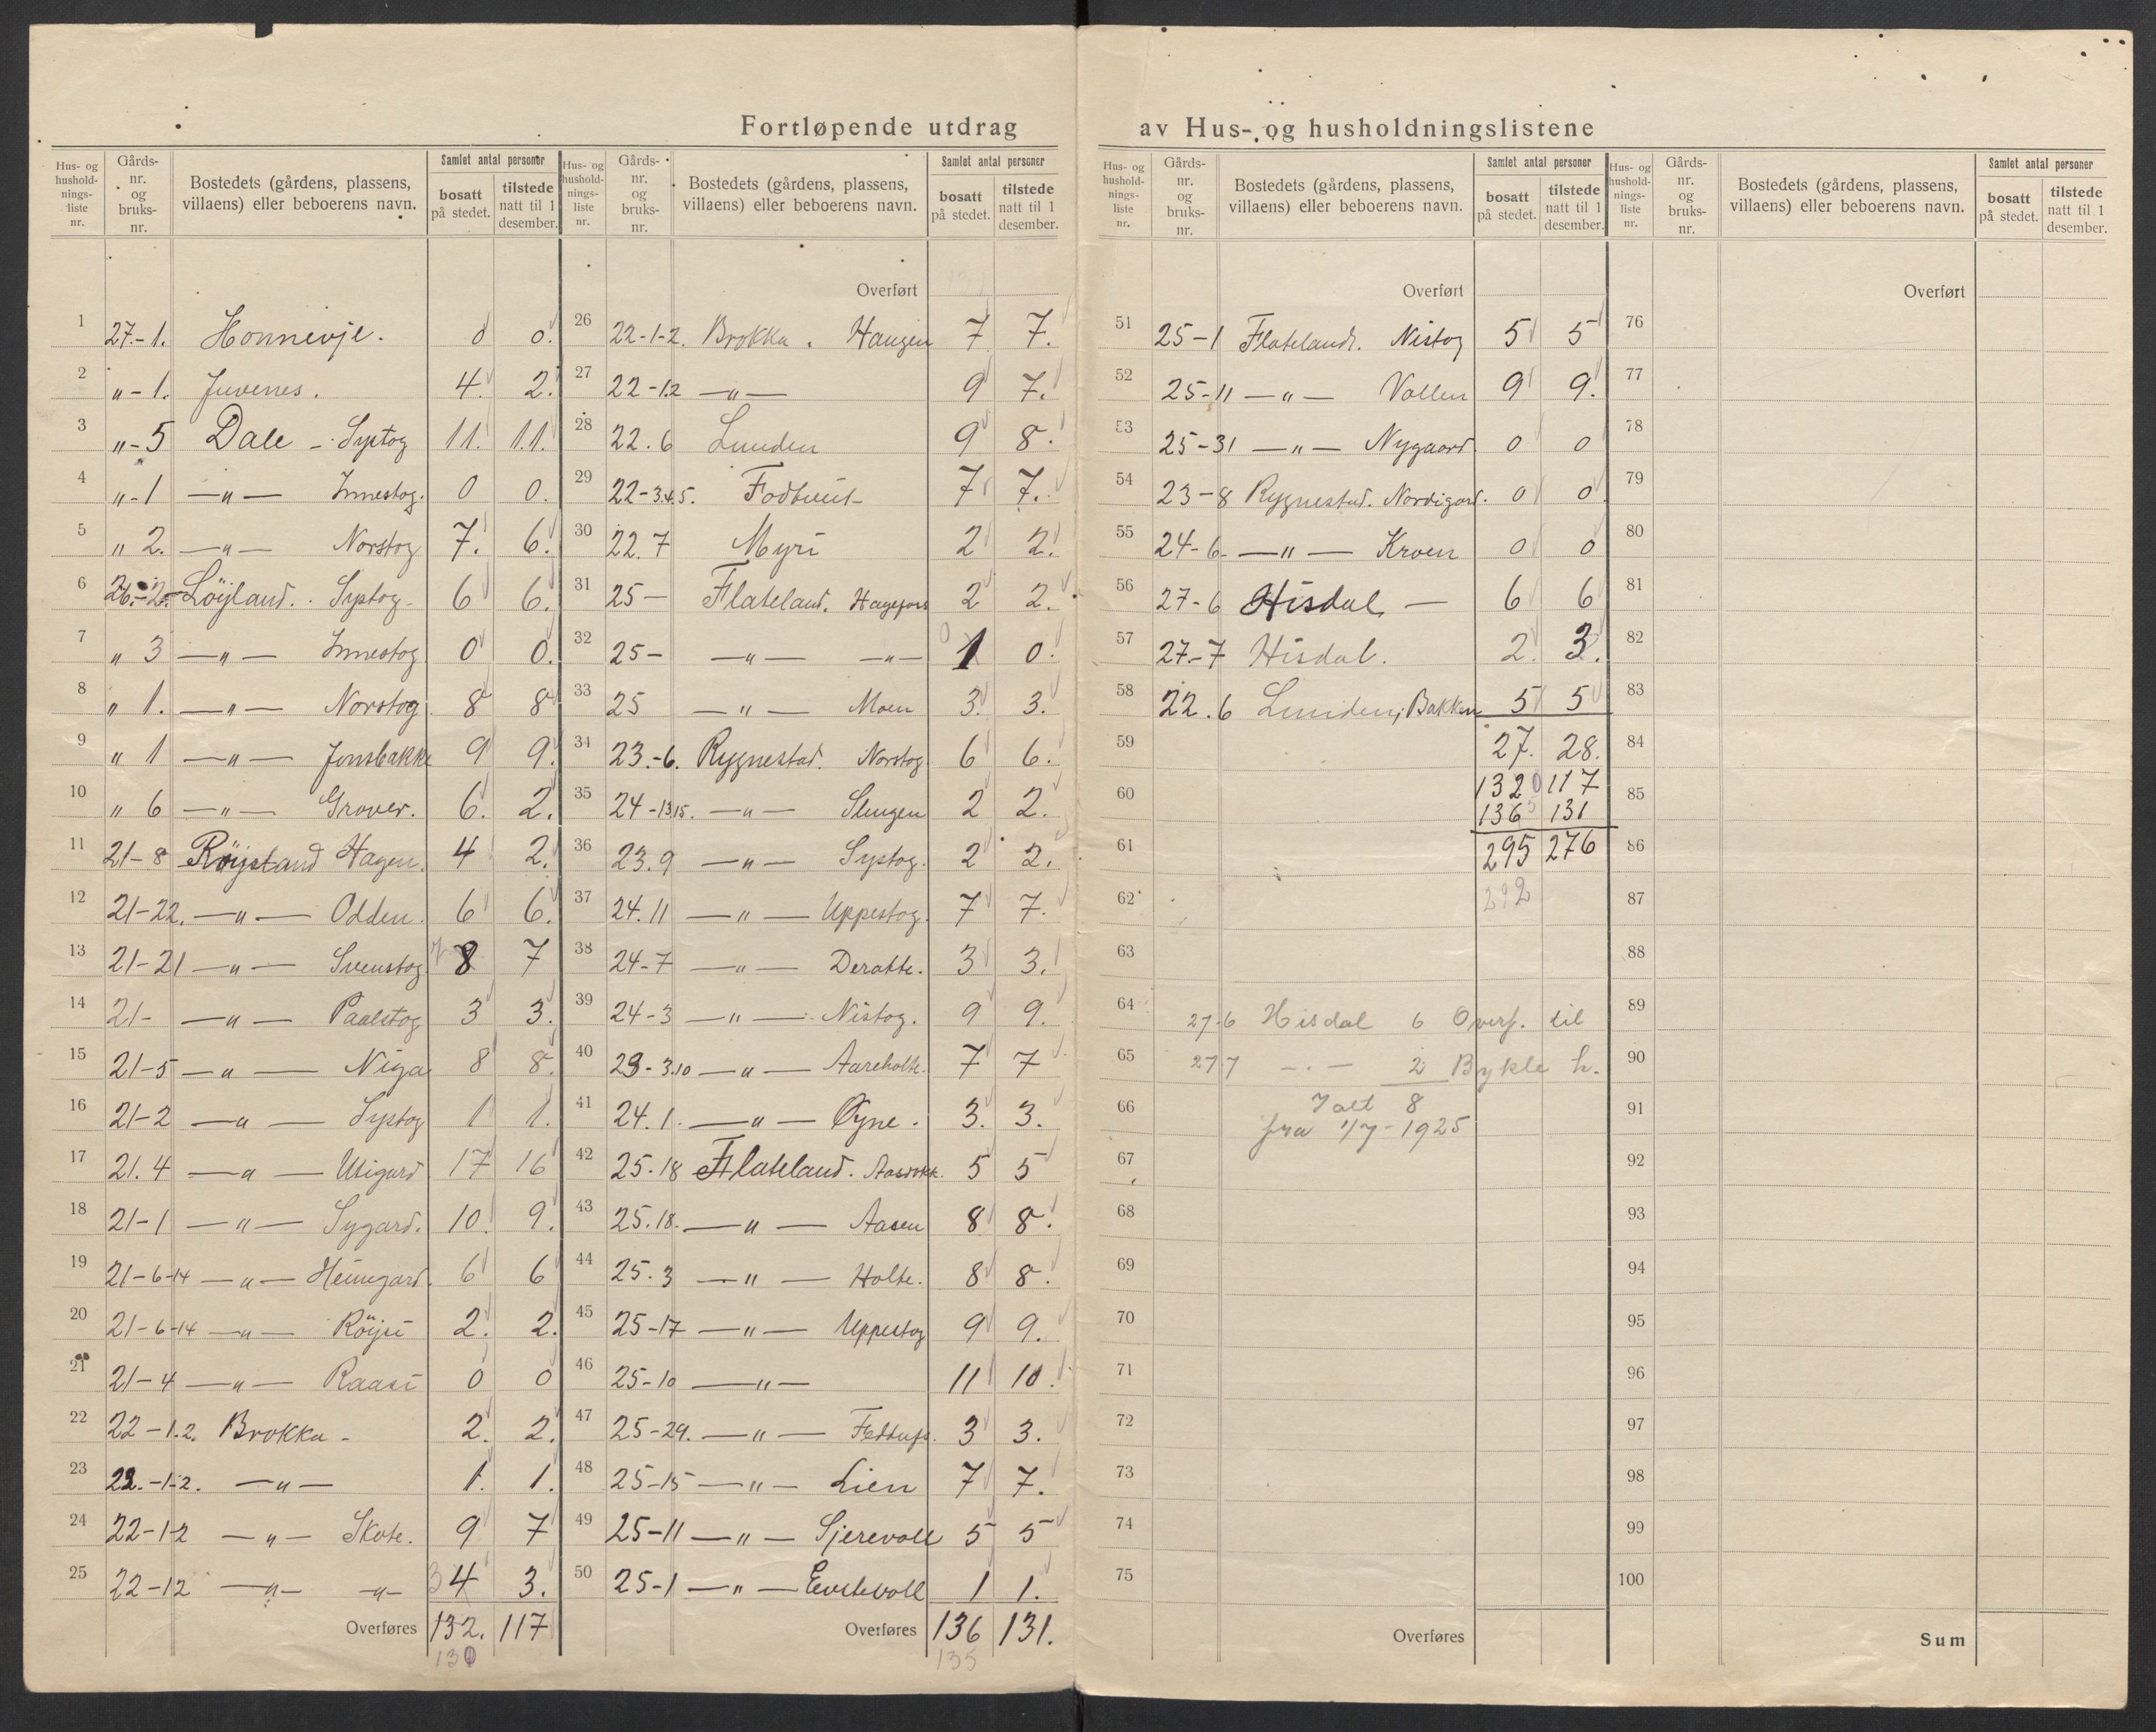 Fortløpende utdrag av Hus- og husholdningslistene
Hus- og hushold-nings-liste nr. Gårds-nr. og bruks-nr. Bostedets (gårdens, plassens, villaens) eller beboerens navn. Samlet antal personer bosatt på stedet. tilstede natt til 1 desember.
1 27.-1. Honnevje. 0 0.
2 "-1. Juvenes. 4. 2.
3 "-5 Dale - Systog 11. 11.
4 "-1 —"— Innestog. 0 0.
5 " 2. —"— Norstog 7. 6.
6 26.-2. Löyland. Systog 6 6.
7 " 3 —"— Innestog 0 0.
8 " 1. —"— Norstog 8 8
9 " 1 —"— Jonsbakke 9 9.
10 " 6 —"— Grover. 6. 2.
11 21-8 Röystand Hagen. 4 2.
12 21-22. —"— Odden. 6 6.
13 21-21 —"— Svenstog 7 8 7
14 21- —"— Paalstog 3 3.
15 21-5 —"— Niga 8 8.
16 21-2 —"— Systog 1 1.
17 21.4 —"— Utigard 17 16
18 21-1 —"— Sygard. 10. 9.
19 21-6-14 —"— Heimegard. 6 6
20 21-6-14 —"— Röysi 2. 2.
21 21-4 —"— Raasi 0 0
22 22-1.2. Brokka - 2. 2.
23 22.-1-2. —"— 1. 1.
24 22-1-2 —"— Skote. 9 7
25 22-12 —"— —"— 3 4 3.
Overføres 132. 117
130
Hus- og hushold-nings-liste nr. Gårds-nr. og bruks-nr. Bostedets (gårdens, plassens, villaens) eller beboerens navn. Samlet antal personer bosatt på stedet. tilstede natt til 1 desember.
Overført
26 22-1-2. Brokka. Haugen 7 7.
27 22-1.2 —"— 9 7.
28 22.6 Lunden 9 8.
29 22-3.4.5. 7 7.
30 22.7 Myri 2 2.
31 25— Flateland. 2 2.
32 25- —"— —"— 0 1 0.
33 25 —"— Moen 3. 3.
34 23.-6. Rygnestad. Norstog 6 6.
35 24-13.15. —"— 2 2.
36 23.9 —"— Systog. 2 2.
37 24.11 —"— Uppestog. 7 7.
38 24-7 —"— 3 3.
39 24-3 —"— Nistog. 9 9.
40 23-3.10 —"— Aareholt. 7 7
41 24.1. —"— Øyne. 3. 3.
42 25.18 Flateland. 5 5
43 25.18. —"— Aasen 8 8.
44 25.3 —"— Holte. 8 8.
45 25-17 —"— Uppestog 9 9.
46 25-10 —"— 11 10.
47 25-29. —"— 3 3.
48 25-15 —"— Lien 7 7.
49 25-11 —"— Sjerevoll 5 5
50 25-1 —"— 1 1.
Overføres 136 131.
135
Hus- og hushold-nings-liste nr. Gårds-nr. og bruks-nr. Bostedets (gårdens, plassens, villaens) eller beboerens navn. Samlet antal personer bosatt på stedet. tilstede natt til 1 desember.
Overført
51 25-1 Flateland. Nistog 5 5
52 25-11 —"— Vollen 9 9.
53 25-31 —"— Nygaard 0 0
54 23-8 Rygnestad. Nordigard. 0 0
55 24-6. —"— Kroen 0 0
56 27-6 Hisdal — 6 6
57 27-7 Hisdal. 2. 3.
58 22.6 Lunden, Bakken 5 5
59 27. 28.
60 132 117
136 131
61 295 276
62 292
63
64 27-6 Hisdal 6 Overf. til
65 27 7 -.- 2 Bykle h.
66 Ialt 8
fra 1/7-1925
67
68
69
70
71
72
73
74
75
Overføres
Hus- og hushold-nings-liste nr. Gårds-nr. og bruks-nr. Bostedets (gårdens, plassens, villaens) eller beboerens navn. Samlet antal personer bosatt på stedet. tilstede natt til 1 desember.
Overført
76
77
78
79
80
81
82
83
84
85
86
87
88
89
90
91
92
93
94
95
96
97
98
99
100
Sum